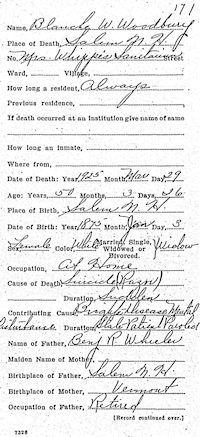 171
Name, Blanche W. Woodbury
Place of Death, Salem N. H.
No. Mrs. Whipples Sanitarium
Ward, Village,
How long a resident, Always
Previous residence,
If death occurred at an institution give name of same
How long an inmate,
Where from,
Date of Death: Year, 1925 Month, Mar Day, 29
Age: Years, 50 Months, 3 Days, 26
Place of Birth, Salem N. H.
Date of Birth: Year, 1875 Month, Jan Day, 3
Sex, Female Color, White Married, Single, Widowed or Divorced. Widow
Occupation, At Home
Cause of Death, Suicide
Duration, Sudden
Contributing Cause, Brights disease Mental
disturbance Duration, State Patient Paroled
Name of Father, Benj R Wheeler
Maiden Name of Mother,
Birthplace of Father, Salem N. H.
Birthplace of Mother, Vermont
Occupation of Father, Retired
[Record continued over.]